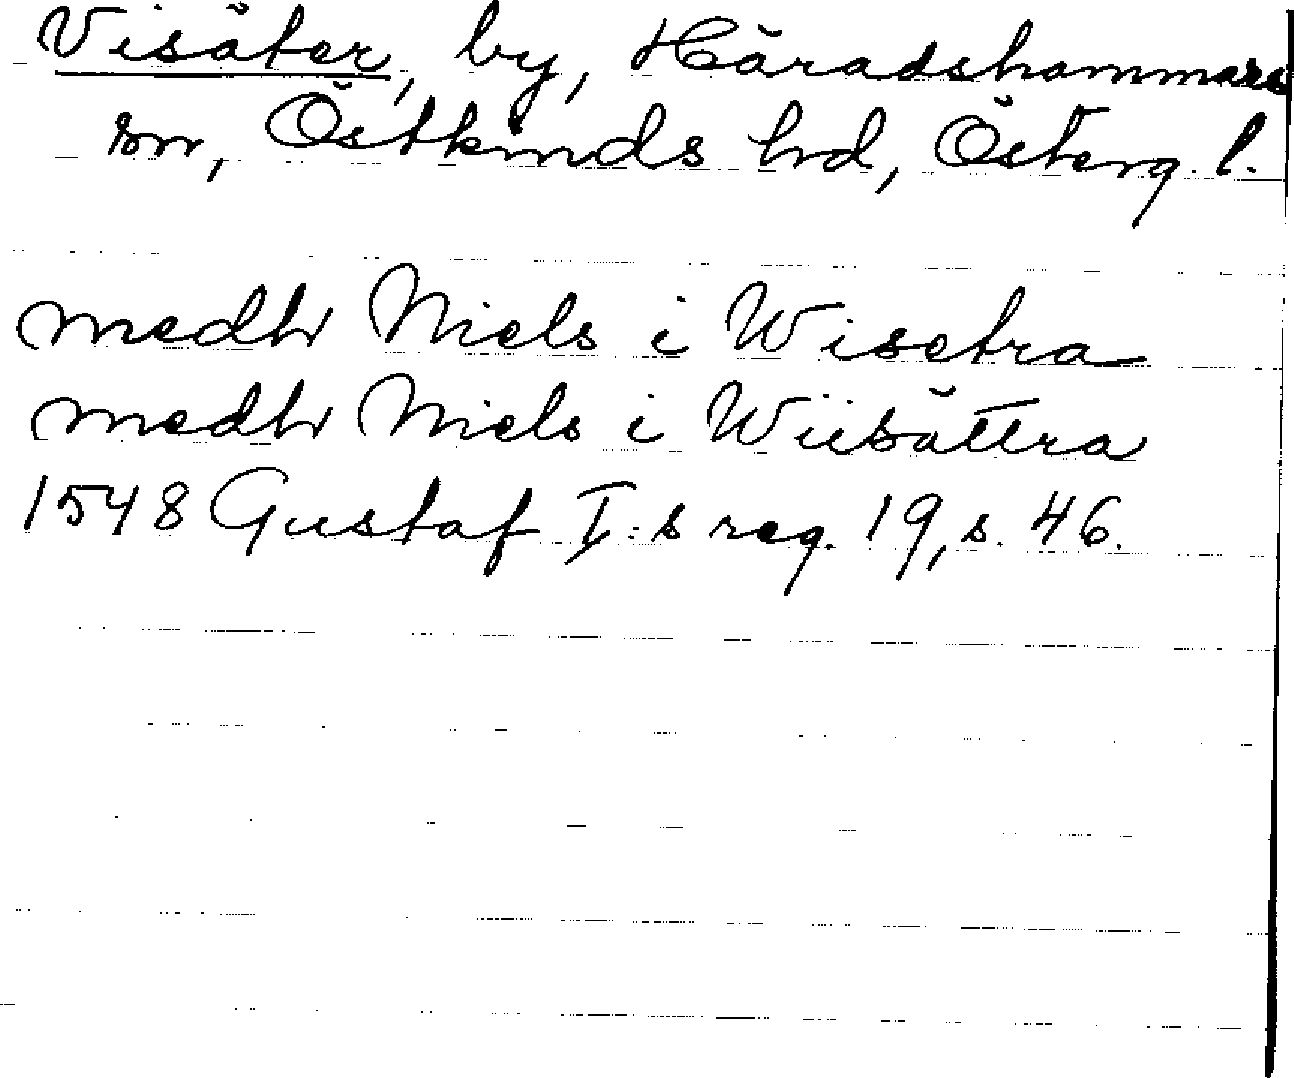 Visäter, by, Häradshammars
sn, Östkinds hd, Österg. l.
medh Niels i Wisetra
medh Niels i Wiisättra
1548 Gustaf I:s reg. 19, s. 46.